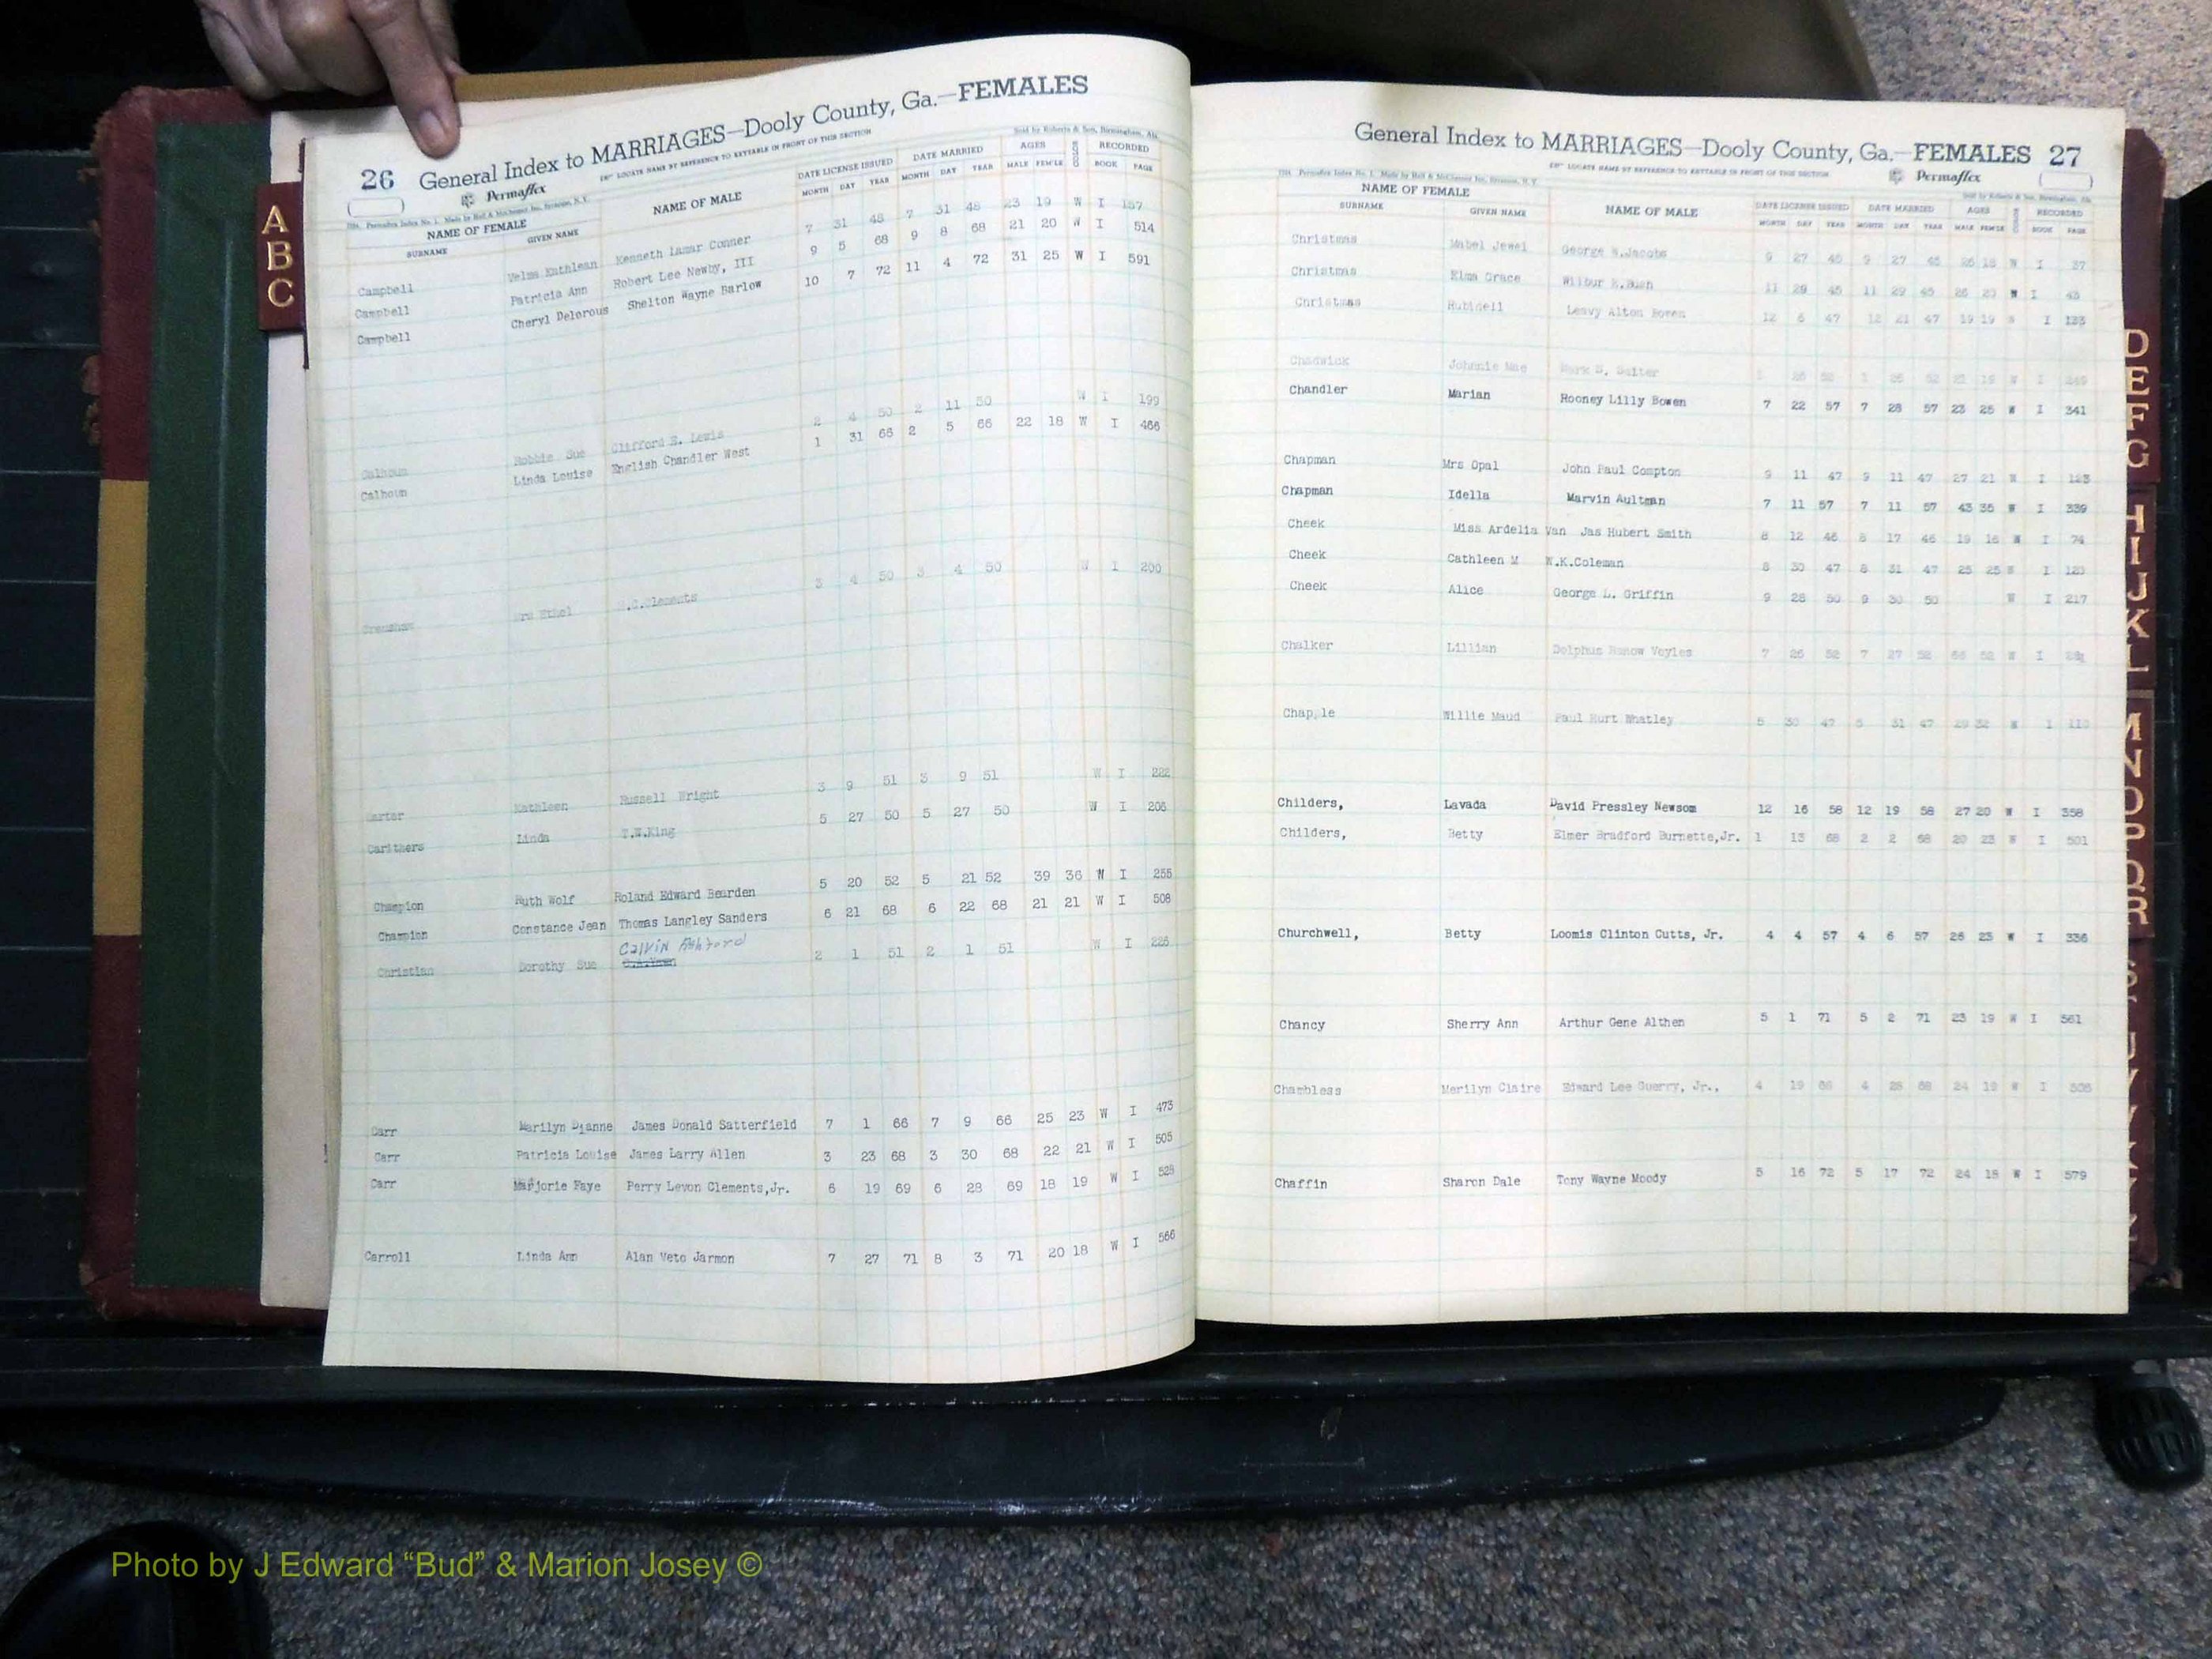 A
B
C
26 General Index to MARRIAGES—Dooly County, Ga.—FEMALES
Permaflex
NAME OF FEMALE
SURNAME GIVEN NAME NAME OF MALE DATE LICENSE ISSUED DATE MARRIED AGES RECORDED
MONTH DAY YEAR MONTH DAY YEAR MALE FEM'LE BOOK PAGE
Campbell Velma Kathlean Kenneth Lamar Conner 7 31 48 7 31 48 23 19 W I 157
Campbell Patricia Ann Robert Lee Newby, III 9 5 68 9 8 68 21 20 W I 514
Campbell Cheryl Delorous Shelton Wayne Barlow 10 7 72 11 4 72 31 25 W I 591
Calhoun Bobbie Sue Clifford S. Lewis 2 4 50 2 11 50 W I 199
Calhoun Linda Louise English Chandler West 1 31 66 2 5 66 22 18 W I 466
Mrs Ethel 3 4 50 3 4 50 W I 200
Carter Kathleen Russell Wright 3 9 51 3 9 51 W I 222
Carithers Linda T.W.King 5 27 50 5 27 50 W I 206
Champion Ruth Wolf Roland Edward Bearden 5 20 52 5 21 52 39 36 W I 255
Champion Constance Jean Thomas Langley Sanders 6 21 68 6 22 68 21 21 W I 508
Christian Dorothy Sue Calvin Ashford 2 1 51 2 1 51 W I
Carr Marilyn Dianne James Donald Satterfield 7 1 66 7 9 66 25 23 W I 473
Carr Patricia Louise James Larry Allen 3 23 68 3 30 68 22 21 W I 505
Carr Marjorie Faye Perry Levon Clements,Jr. 6 19 69 6 28 69 18 19 W I 528
Carroll Linda Ann Alan Veto Jarmon 7 27 71 8 3 71 20 18 W I 566
General Index to MARRIAGES—Dooly County, Ga.—FEMALES 27
Permaflex
NAME OF FEMALE
SURNAME GIVEN NAME NAME OF MALE DATE LICENSE ISSUED DATE MARRIED AGES RECORDED
MONTH DAY YEAR MONTH DAY YEAR MALE FEM'LE BOOK PAGE
Christmas Mabel Jewel George W.Jacobs 9 27 45 9 27 45 W I 37
Christmas Elma Grace Wilbur E.Bush 11 29 45 11 29 45 26 20 W I
Christmas Rubinell Leavy Alton Bowen 12 6 47 12 21 47 19 19 I 133
Chadwick Johnnie Mae Mark S. Salter W I
Chandler Marian Rooney Lilly Bowen 7 22 57 7 28 57 23 25 W I 341
Chapman Mrs Opal John Paul Compton 9 11 47 9 11 47 27 21 W I 123
Chapman Idella Marvin Aultman 7 11 57 7 11 57 43 35 W I 339
Cheek Miss Ardelia Van Jas Hubert Smith 8 12 46 8 17 46 19 16 W I 74
Cheek Cathleen M W.K.Coleman 8 30 47 8 31 47 25 25 I 120
Cheek Alice George L. Griffin 9 28 50 9 30 50 W I 217
Chalker Lillian Dolphus Renow Voyles 7 26 52 7 27 52 W I
Chap,le Willie Maud Paul Hurt Whatley 5 30 47 5 31 47 I
Childers, Lavada David Pressley Newsom 12 16 58 12 19 58 27 20 W I 358
Childers, Betty Elmer Bradford Burnette,Jr. 1 13 68 2 2 68 20 23 W I 501
Churchwell, Betty Loomis Clinton Cutts, Jr. 4 4 57 4 6 57 26 23 W I 336
Chancy Sherry Ann Arthur Gene Althen 5 1 71 5 2 71 23 19 W I 561
Chambless Merilyn Claire Edward Lee Guerry, Jr., 4 19 68 4 28 68 24 19 W I
Chaffin Sharon Dale Tony Wayne Moody 5 16 72 5 17 72 24 18 W I 579
D
E
F
G
H
I
J
K
L
M
N
O
P
Q
R
S
Photo by J Edward “Bud” & Marion Josey ©